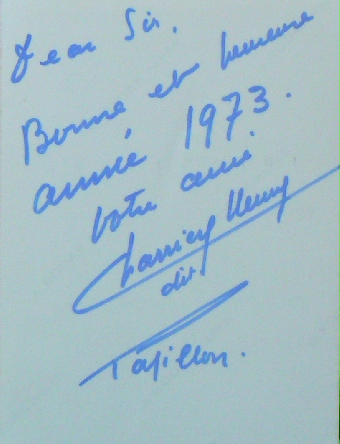 Dear Sir.
Bonne et heureuse
année 1973.
Votre ami
Charrière Henry
dit
Papillon.